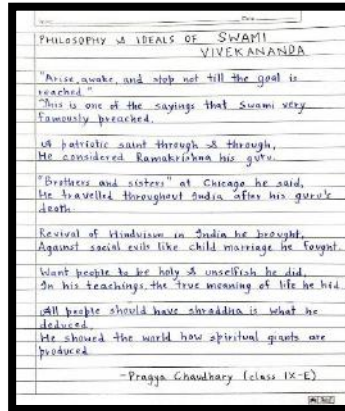 PHILOSOPHY & IDEALS OF SWAMI
VIVEKANANDA
"Arise, awake, and stop not till the goal is
reached."
This is one of the sayings that Swami very
famously preached.
A patriotic saint through & through,
He considered Ramakrishna his guru.
"Brothers and sisters" at Chicago he said,
He travelled throughout India after his guru's
death.
Revival of Hinduism in India he brought,
Against social evils like child marriage he fought.
Want people to be holy & unselfish he did,
In his teachings, the true meaning of life he hid.
All people should have shraddha is what he
deduced,
He showed the world how spiritual giants are
produced
-Pragya Chaudhary (class IX-E)